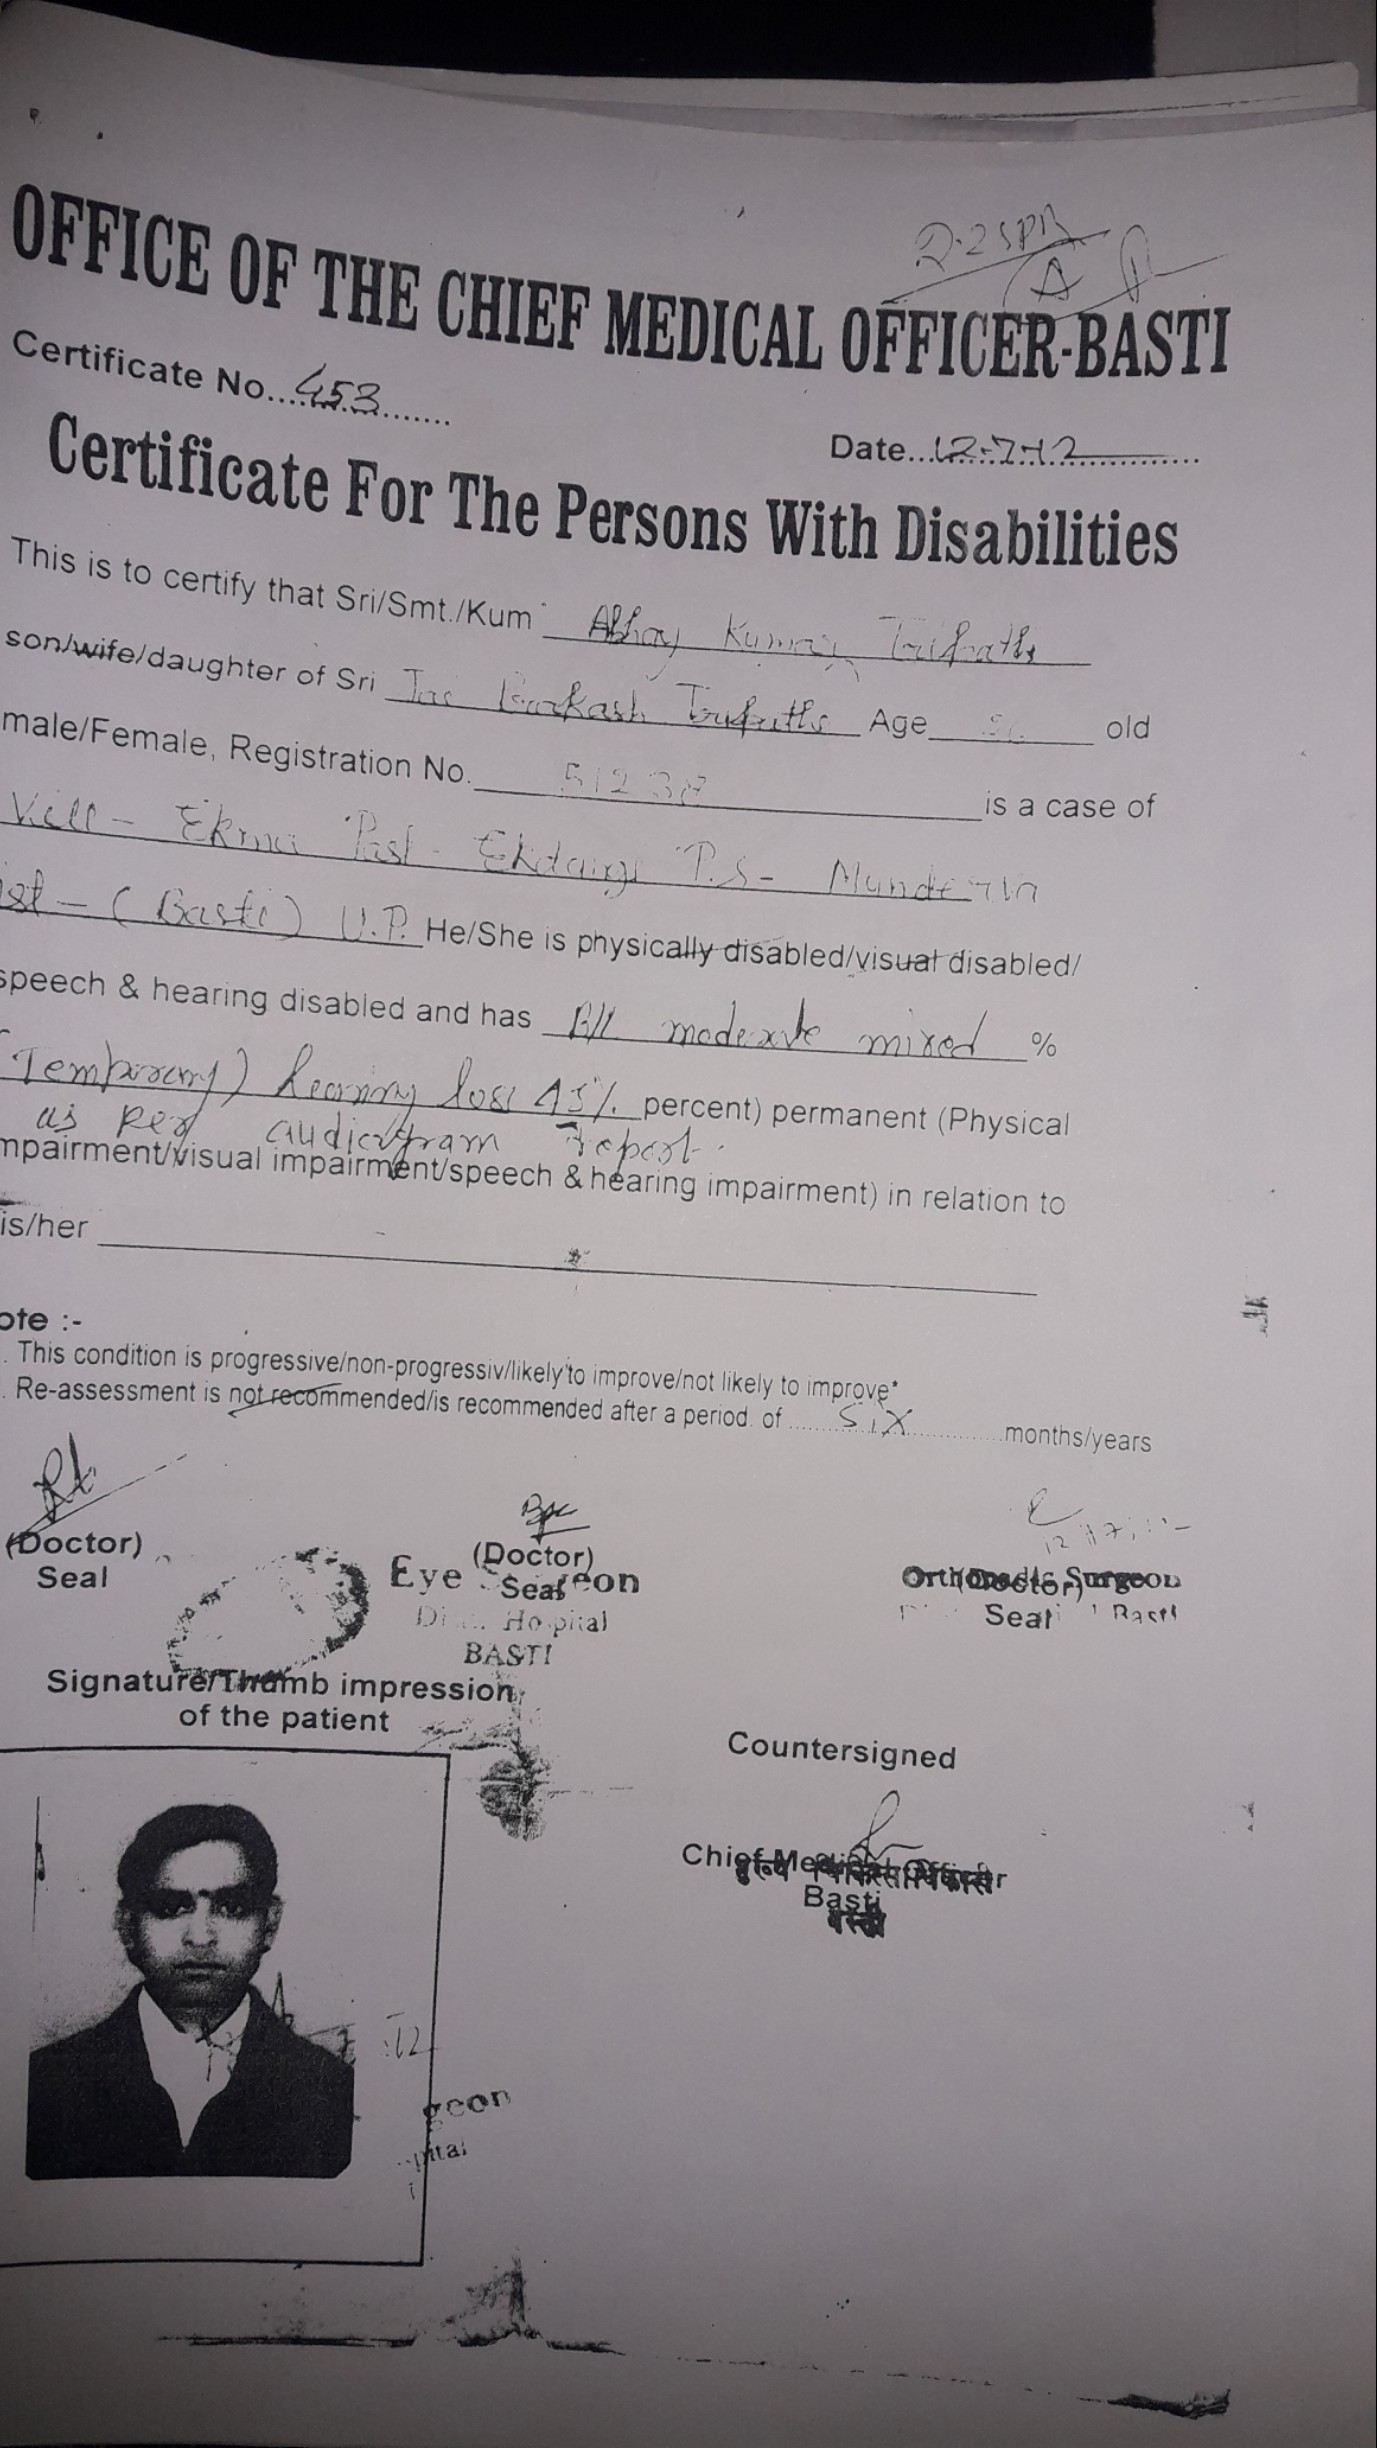 2.25PM
A
OFFICE OF THE CHIEF MEDICAL OFFICER-BASTI
Certificate No....453.......
Date...12-7-12..........
Certificate For The Persons With Disabilities
This is to certify that Sri/Smt./Kum Abhay Kumar Tripathi
son/wife/daughter of Sri Jai Prakash Tripathi Age old
male/Female, Registration No. 51238 is a case of
Vill- Ekma Post- Ekdangi P.S- Munderwa
ist - (Basti) U.P. He/She is physically disabled/visual disabled/
speech & hearing disabled and has B/L moderate mixed %
(Temporary) hearing loss 45% percent) permanent (Physical
as per audiogram report.
mpairment/visual impairment/speech & hearing impairment) in relation to
is/her
ote :-
. This condition is progressive/non-progressiv/likely to improve/not likely to improve*
. Re-assessment is not recommended/is recommended after a period. of ......SIX......months/years
(Doctor)
Seal
(Doctor)
Seal
Eye geon
Hospital
BASTI
Orthopaedic Surgeon
(Doctor)
Seal
Basti
Signature/Thumb impression
of the patient
Countersigned
Chief Medical Officer
Basti
मुख्य चिकित्साधिकारी
बस्ती
12
geon
pital